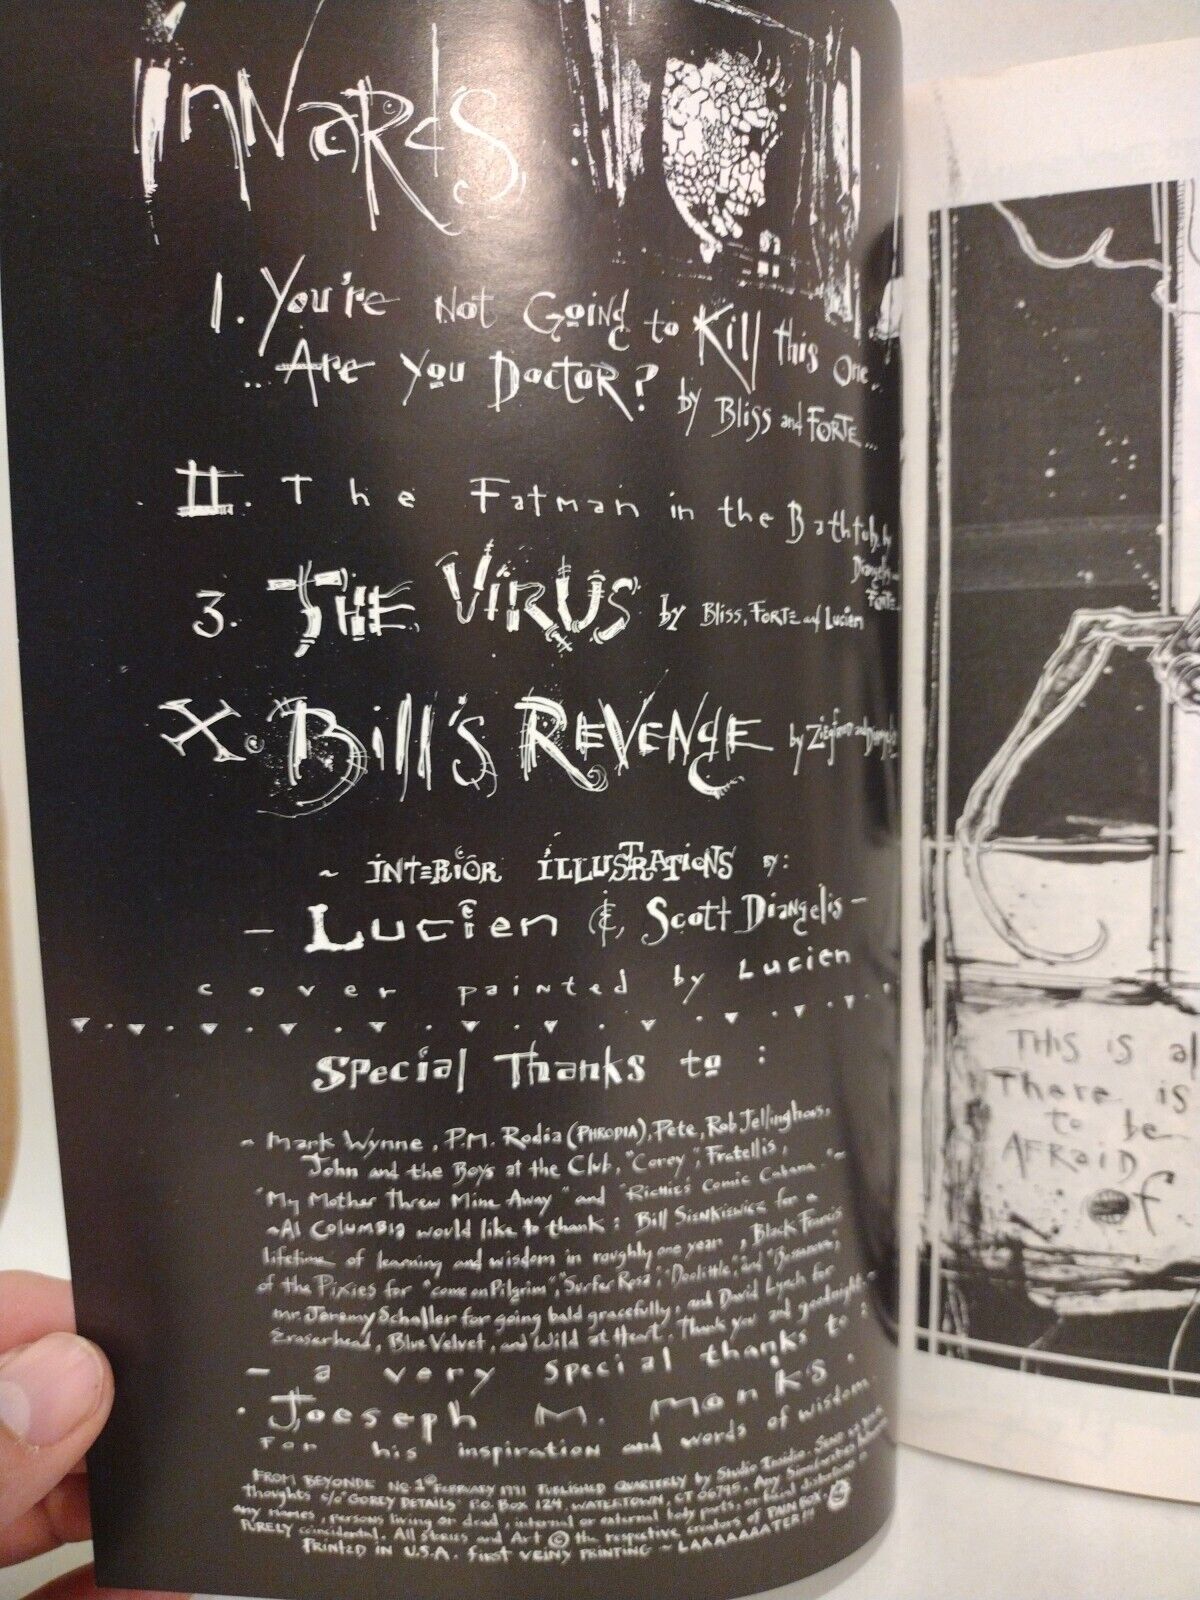 INNARdS
1. You're Not Going to Kill this One..
...Are You Doctor? by Bliss and FORTE...
II. The Fatman in the Bathtub, by
Diangelis
FORTE
3. THE VIRUS by Bliss, FORTE and Lucien
X. Bill's REVENGE by and
~ INTERIOR ILLUSTRATIONS BY:
- Lucien &, Scott Diangelis -
cover painted by Lucien
Special Thanks to :
~ Mark Wynne, P.M. Rodia (PHRODIA), Pete, Rob Jellinghaus,
John and the Boys at the Club, "Corey", Fratellis,
"My Mother Threw Mine Away" and "Richies' Comic Cabana."~
~Al COLUMBIA would like to thank: Bill SIENKIEWICZ for a
lifetime of learning and wisdom in roughly one year, Black Francis
of the Pixies for "come on Pilgrim", Surfer Rosa, "Doolittle," and
mr. Jeremy Schaller for going bald gracefully, and David Lynch for
Eraserhead, Blue Velvet, and Wild at Heart. Thank you and goodnight.~
- a very special thanks to :
. Joeseph M. Monks .
For his inspiration and words of wisdom.
FROM BEYONDE NO. 1 FEBRUARY 1991 PUBLISHED QUARTERLY by Studio Insidio. Send
thoughts c/o "GOREY DETAILS" P.O. BOX 124, WATERTOWN, CT 06795. Any
any names, persons living or dead, internal or external body parts, or facial distortions is
PURELY coincidental. All stories and Art © the respective creators of PAIN BOX.
PRINTED IN U.S.A. FIRST VEINY PRINTING ~ LAAAAAATER!!
THIS IS al
There is
to be
AFRAID
of